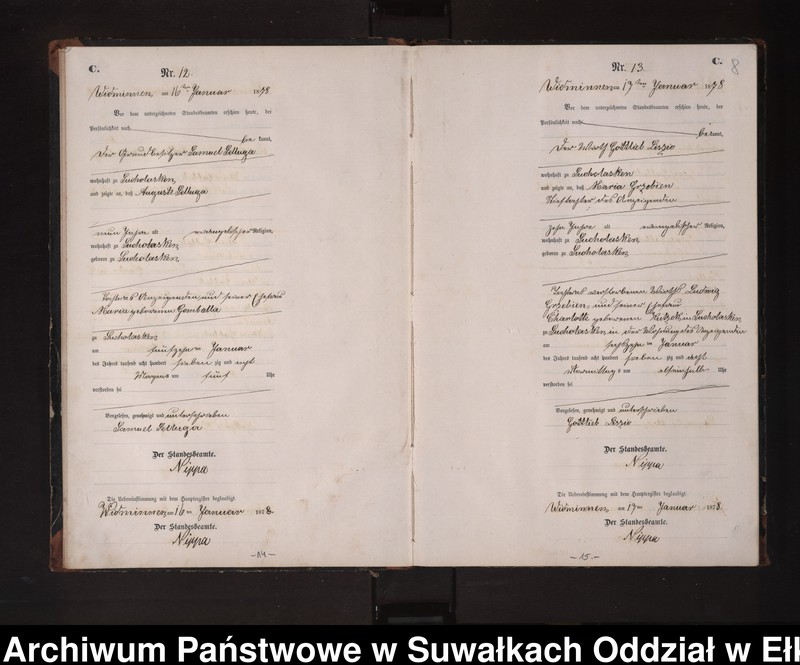 C.
Nr. 12.
Widminnen am 16ten Januar 1878
Vor dem unterzeichneten Standesbeamten erschien heute, der
Persönlichkeit nach
be kannt,
der Grundbesitzer Samuel Polluga
wohnhaft zu Sucholasken,
und zeigte an, daß Auguste Polluga
neun Jahre alt evangelischer Religion,
wohnhaft zu Sucholasken,
geboren zu Sucholasken,
Tochter des Anzeigenden und seiner Ehefrau
Maria geborenen Gomballa
zu Sucholasken,
am fünfzehnten Januar
des Jahres tausend acht hundert sieben zig und acht
Morgens um fünf Uhr
verstorben sei
Vorgelesen, genehmigt und unterschrieben
Samuel Polluga
Der Standesbeamte.
Nippa
Die Uebereinstimmung mit dem Hauptregister beglaubigt.
Widminnen am 16ten Januar 1878.
Der Standesbeamte.
Nippa
-14-
C.
8
Nr. 13.
Widminnen am 17ten Januar 1878
Vor dem unterzeichneten Standesbeamten erschien heute, der
Persönlichkeit nach
be kannt,
der Wirth Gottlieb Leszio
wohnhaft zu Sucholasken
und zeigte an, daß Maria Grzobien
Stieftochter des Anzeigenden
zehn Jahre alt evangelischer Religion,
wohnhaft zu Sucholasken,
geboren zu Sucholasken,
Tochter des verstorbenen Wirths Ludwig
Grzobien, und seiner Ehefrau
Charlotte geborenen in Sucholasken
zu Sucholasken in der Wohnung des Anzeigenden
am sechszehnten Januar
des Jahres tausend acht hundert sieben zig und acht
Vormittags um Uhr
verstorben sei
Vorgelesen, genehmigt und unterschrieben
Gottlieb Leszio
Der Standesbeamte.
Nippa
Die Uebereinstimmung mit dem Hauptregister beglaubigt.
Widminnen, am 17ten Januar 1878.
Der Standesbeamte.
Nippa
-15-
Archiwum Państwowe w Suwałkach Oddział w Eł